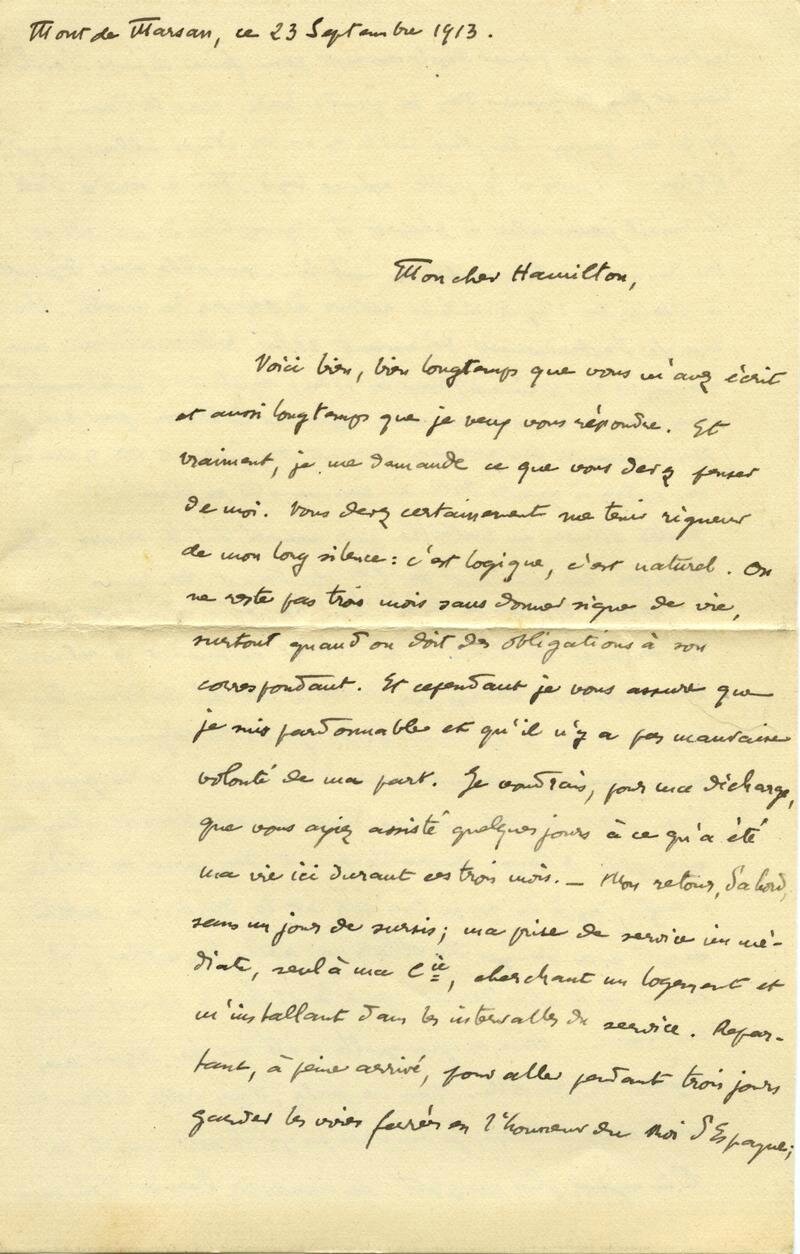 Mont de Marsan, ce 23 Septembre 1913.
Mon cher Hamilton,
Voici bien, bien longtemps que vous m'avez écrit
et aussi longtemps que je veux vous répondre. Et
vraiment, je me demande ce que vous devez penser
de moi. Vous devez certainement me tenir rigueur
de mon long silence : c'est logique, c'est naturel. On
ne reste pas trois mois sans donner signe de vie,
surtout quand on doit des obligations à son
correspondant. Et cependant je vous assure que
je suis pardonnable et qu'il n'y a pas mauvaise
volonté de ma part. Je voudrais, pour ma décharge,
que vous ayiez assisté quelques jours à ce qu'a été
ma vie ici durant ces trois mois. — Mon retour, d'abord,
sans un jour de sursis; ma prise de service immé-
diate, seul à ma Cie, cherchant un logement et
m'installant dans les intervalles du service. Repar-
tant, à peine arrivé, pour aller pendant trois jours
garder les voies ferrées en l'honneur du Roi d'Espagne;